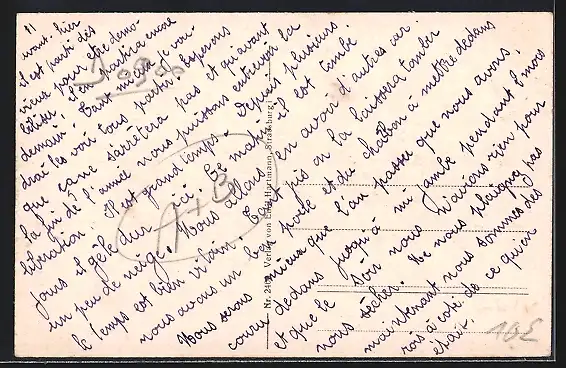 want. hier
Il est parti des
vieux pour être démo-
bilisés. J'en partira encore
demain. Tant mieux je vou-
drai les voir tous partir. Espérons
que ça ne s'arrêtera pas et qu'avant
la fin de l'année nous puissions entrevoir la
libération. Il est grand temps. Depuis plusieurs
jours il gèle dur ici. Ce matin il est tombé
un peu de neige. Nous allons en avoir d'autres car
le temps est bien vilain. Tant pis on la laissera tomber
nous avons un bon poële et du charbon à mettre dedans
Nous serons mieux que l'an passé que nous avons
couru dedans jusqu'à mi jambe pendant 8 mois
et que le soir nous n'avions rien pour
nous sécher. Ne nous plaignons pas
maintenant nous sommes des
rois à côté de ce qu'on
était.
Verlag von Hartmann, Strassburg
A+B